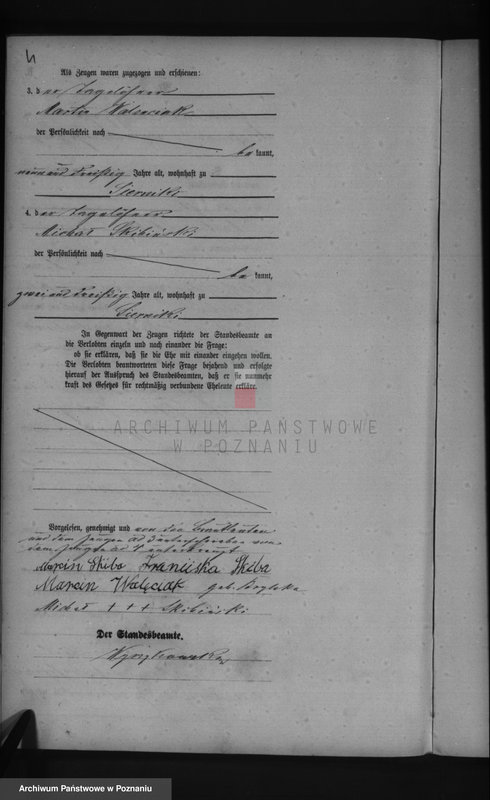 Als Zeugen waren zugezogen und erschienen:
3. der Tagelöhner
Martin Walenciak
der Persönlichkeit nach
bekannt,
neun und dreißig Jahre alt, wohnhaft zu
Sierniki
4. der Tagelöhner
Michał Skibiński
der Persönlichkeit nach
bekannt,
zwei und dreißig Jahre alt, wohnhaft zu
Sierniki
In Gegenwart der Zeugen richtete der Standesbeamte an
die Verlobten einzeln und nach einander die Frage:
ob sie erklären, daß sie die Ehe mit einander eingehen wollen.
Die Verlobten beantworteten diese Frage bejahend und erfolgte
hierauf der Ausspruch des Standesbeamten, daß er sie nunmehr
kraft des Gesetzes für rechtmäßig verbundene Eheleute erkläre.
ARCHIWUM PAŃSTWOWE
W POZNANIU
Vorgelesen, genehmigt und von den Brautleuten
und dem Zeugen ad 3 unterschrieben von
dem Zeugen ad 4 unterkreuzt
Marcin Skiba Franciska Skiba
Marcin Walęciak geb.
Michał + + + Skibiński
Der Standesbeamte.
Archiwum Państwowe w Poznaniu